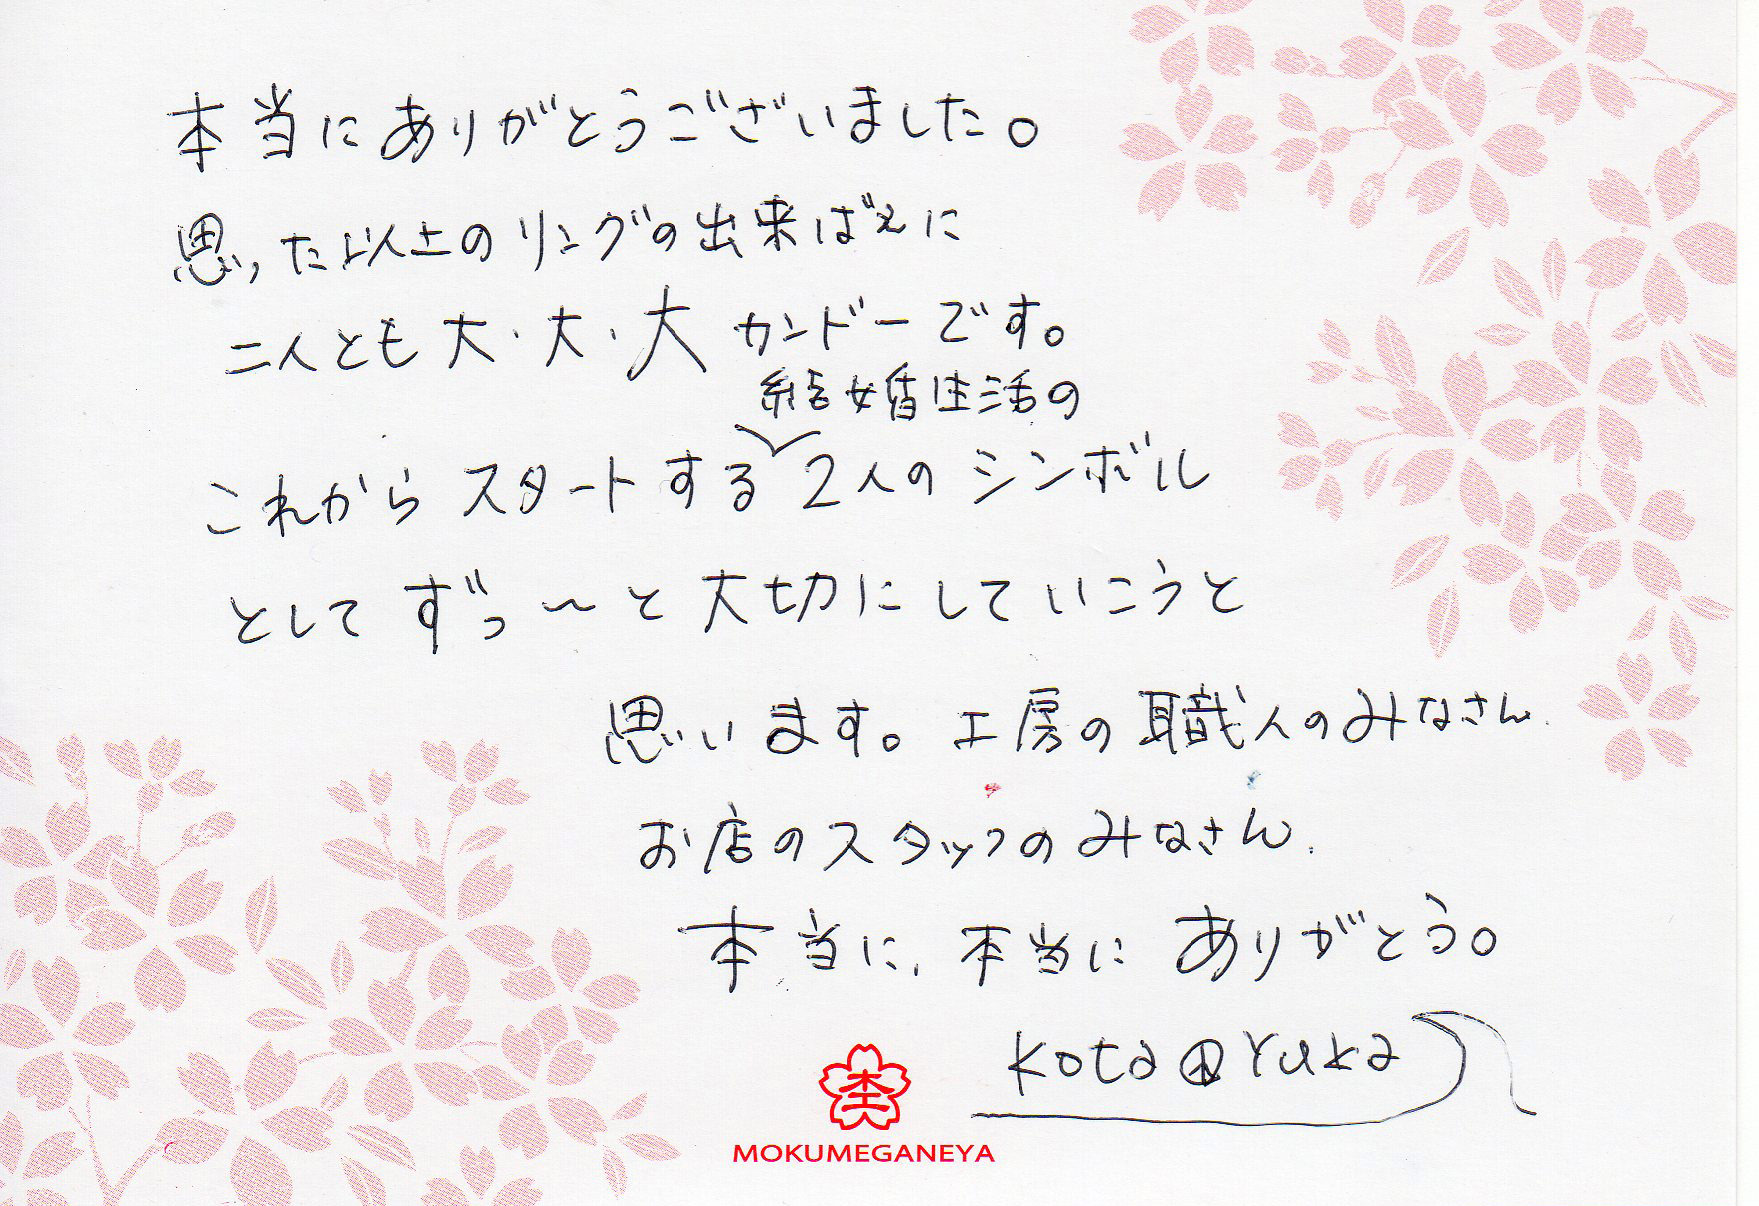 本当にありがとうございました。
思った以上のリングの出来ばえに
二人とも大・大・大カンドーです。
結婚生活の
これからスタートする 2人のシンボル
としてずっ〜と大切にしていこうと
思います。工房の職人のみなさん
お店のスタッフのみなさん.
本当に、本当にありがとう。
Kota Yuka
MOKUMEGANEYA